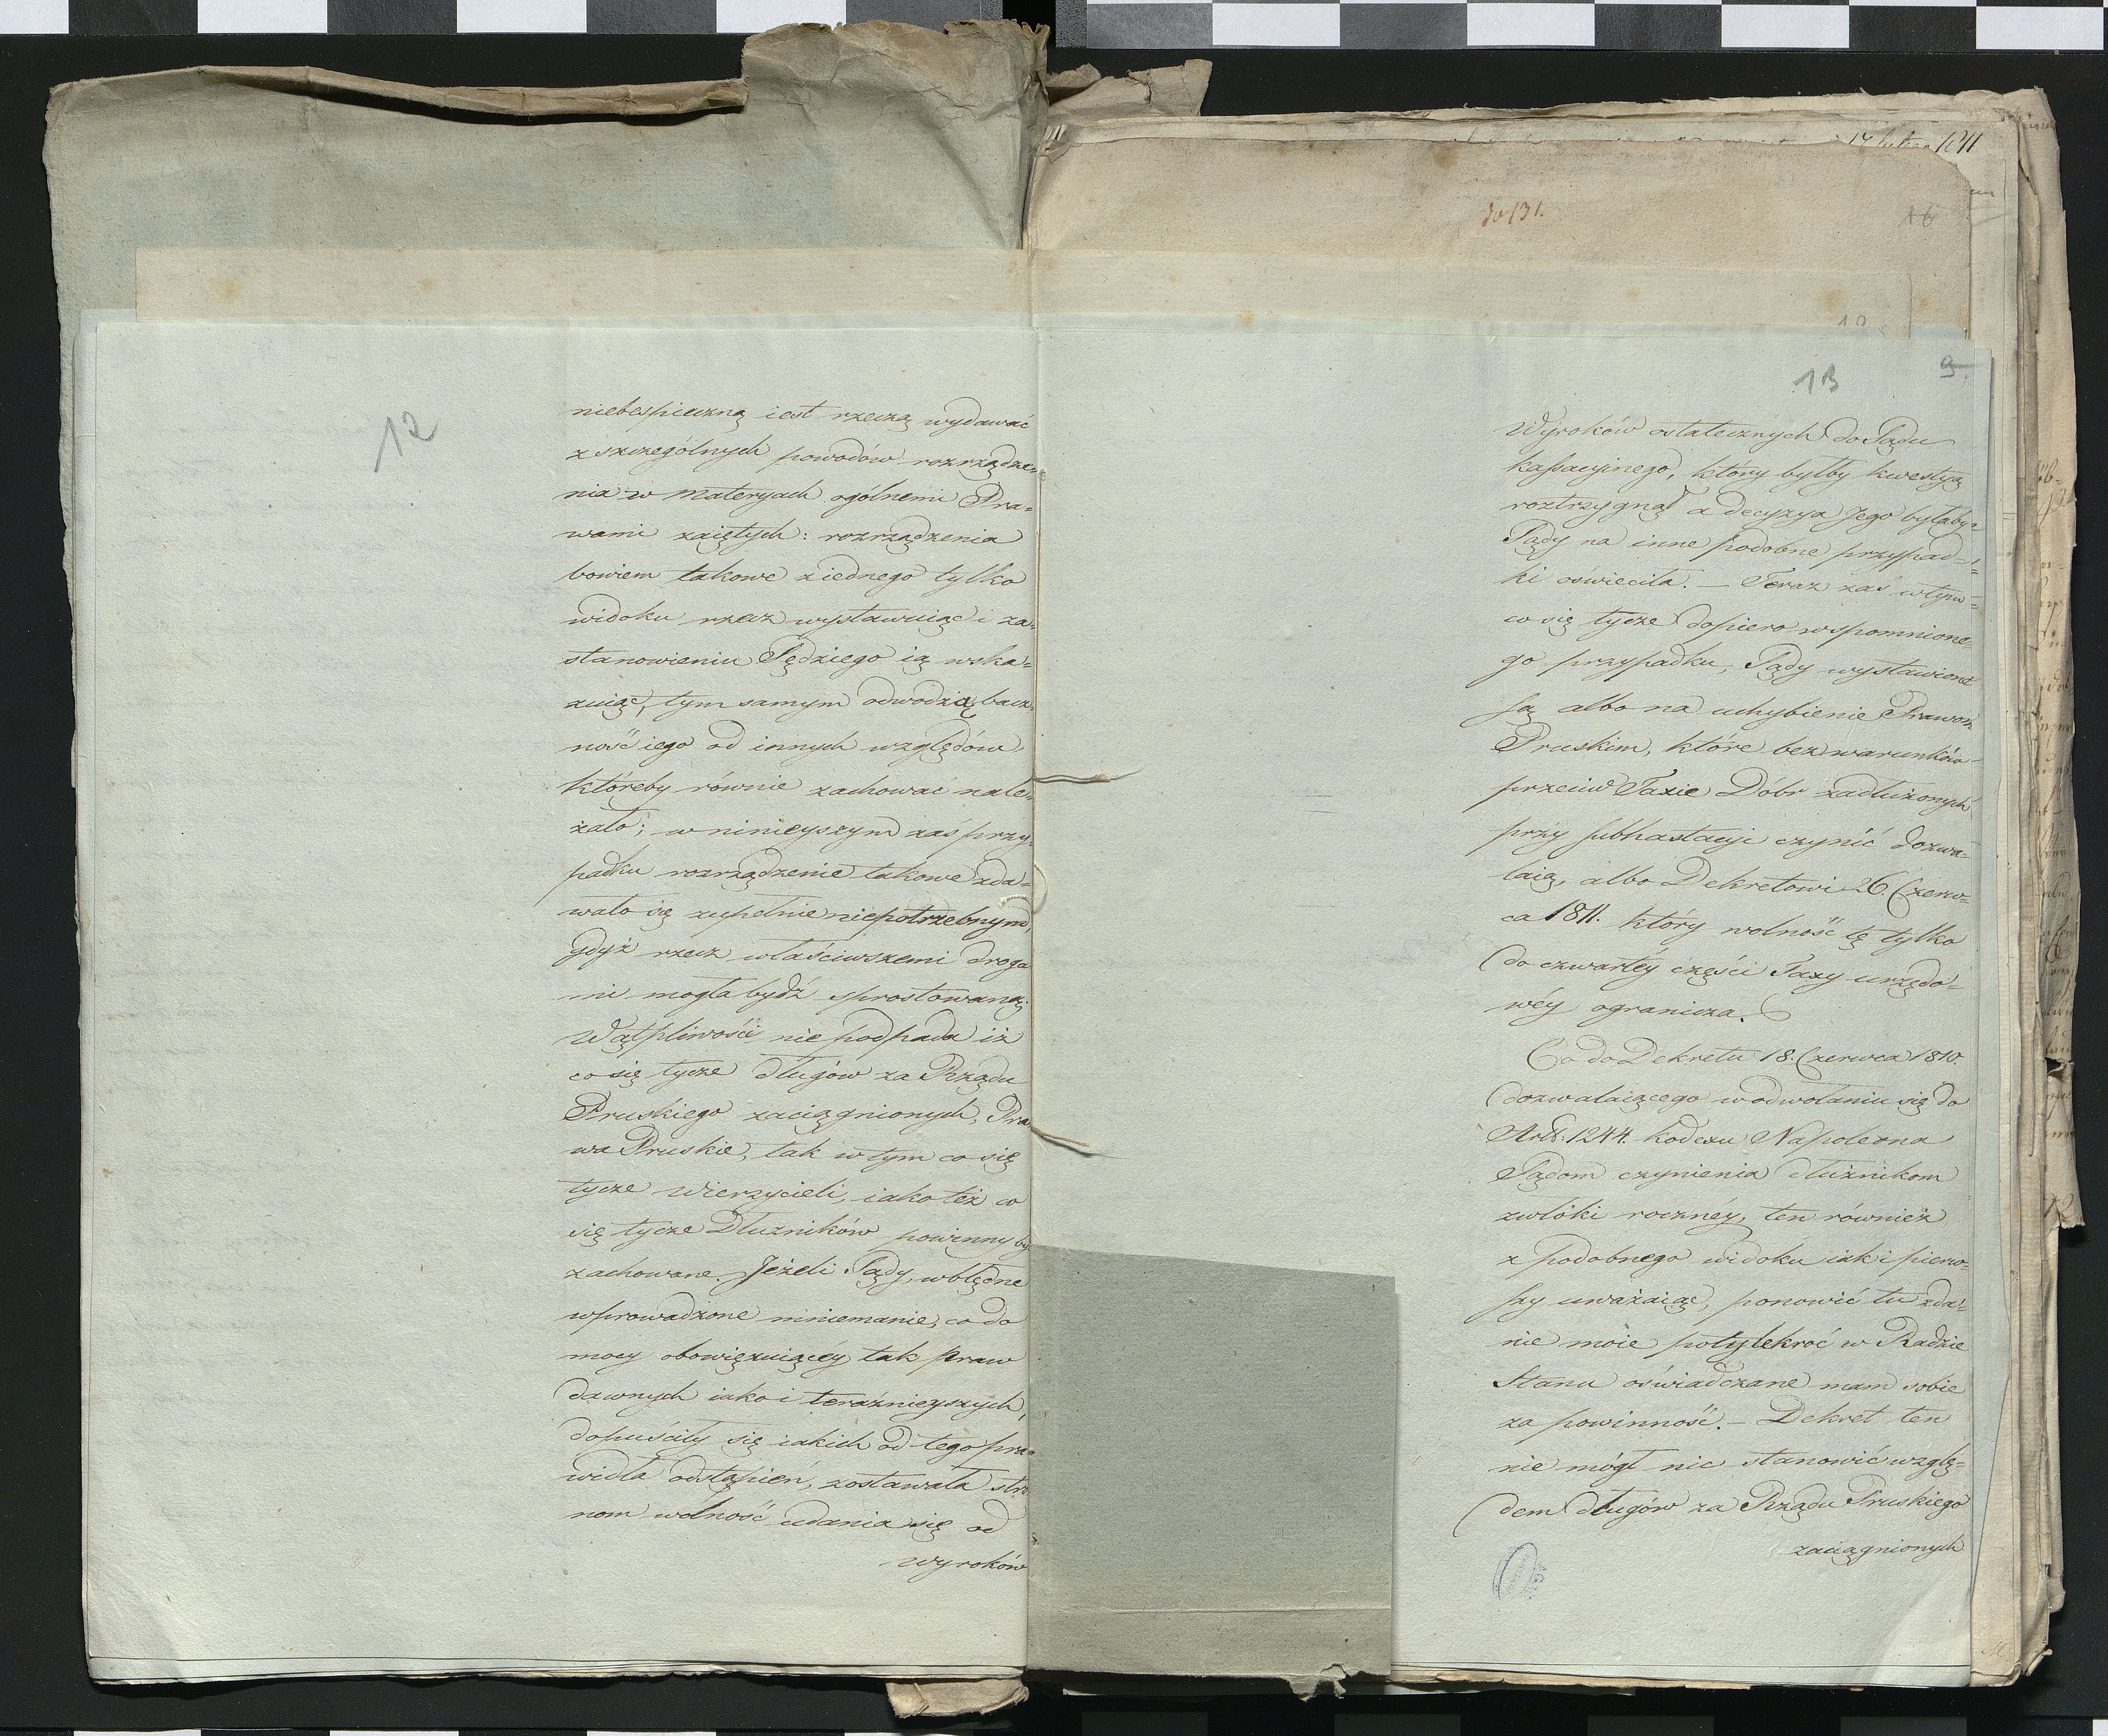 12
niebespieczną iest rzeczą wydawać
z szczególnych powodów rozrządze-
nia w materyach ogólnemi Pra=
wami zaiętych: rozrządzenia
bowiem takowe z iednego tylko
widoku rzecz wystawuiąc i za=
stanowieniu Sędziego ią wska=
zuiąc, tym samym odwodzią bacz=
ność iego od innych względów
któreby równie zachować nale=
żało; w ninieyszym zaś przy=
padku rozrządzenie takowe zda=
wało się zupełnie niepotrzebnym,
gdyż rzecz właściwszemi droga
mi mogła bydź sprostowaną.
Wątpliwości nie podpada iż
co się tycze długów za Rządu
Pruskiego zaciągnionych, Pra
wa Pruskie, tak w tym co się
tycze Wierzycieli, iako też co
się tycze Dłużników powinny by
zachowane. Jeżeli Sądy w błędne
wprowadzone mniemanie, co do
mocy obowięzuiącéy tak praw
dawnych iako i teraźnieyszych,
dopuściły się iakich od tego pra=
widła odstąpień, zostawała stro
nom wolność udania się od
Wyroków
17 1811
do 131.
16
13
9.
Wyroków ostatecznych do Sądu
kassacyinego, który byłby kwestyą
roztrzygnął a decyzya Jego byłaby=
Sądy na inne podobne przypad=
ki oświeciła. – Teraz zaś w tym=
co się tycze dopiero wspomnione=
go przypadku, Sądy wystawione
są albo na uchybienie Prawom
Pruskim, które bez warunków
przeciw Taxie Dóbr zadłużonych
przy subhastacyi czynić dozwa=
laią, albo Dekretowi 26. Czerw=
ca 1811. który wolność tę tylko
do czwartéy części Taxy urzędo=
wéy ogranicza.
Co do Dekretu 18. Czerwca 1810.
dozwalaiącego w odwołaniu się do
Art: 1244. kodexu Napoleona
Sądom czynienia dłużnikom
zwłóki roczney, ten również
z podobnego widoku iak i pierw=
szy uważaiąc, ponowić tu zda=
nie moie potylekroć w Radzie
Stanu oświadczane mam sobie
za powinność. – Dekret ten
nie mógł nic stanowić wzglę=
dem długów za Rządu Pruskiego
zaciągnionych